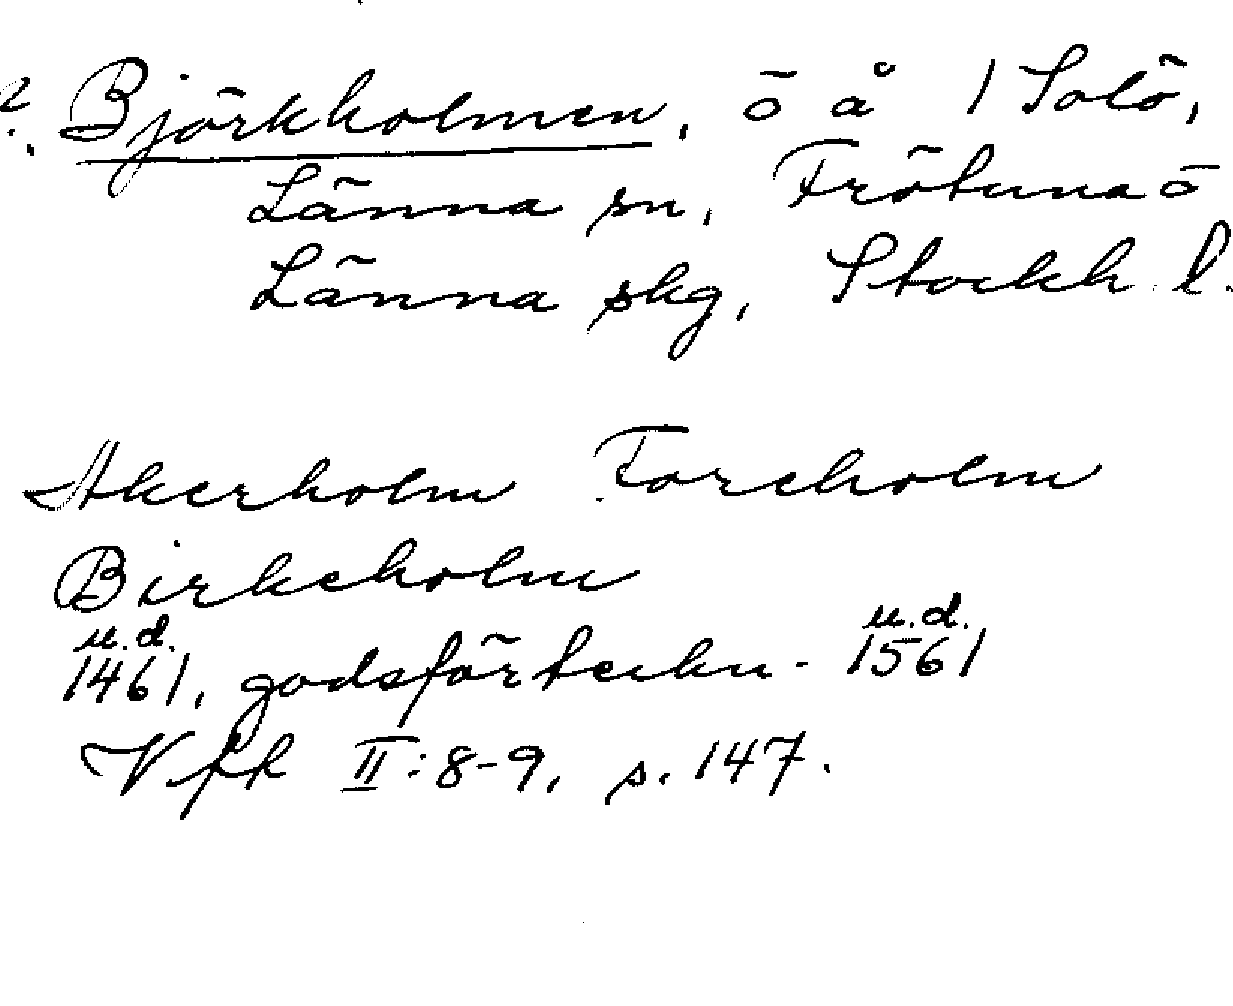 ?. Björkholmen, ö å 1 Solö,
Länna sn, Frötuna ö
Länna skg, Stockh. l.
Akerholm Foreholm
Birkeholm
u.d. u.d.
1461, godsförteckn. 1561
Vfk II:8-9, s. 147.